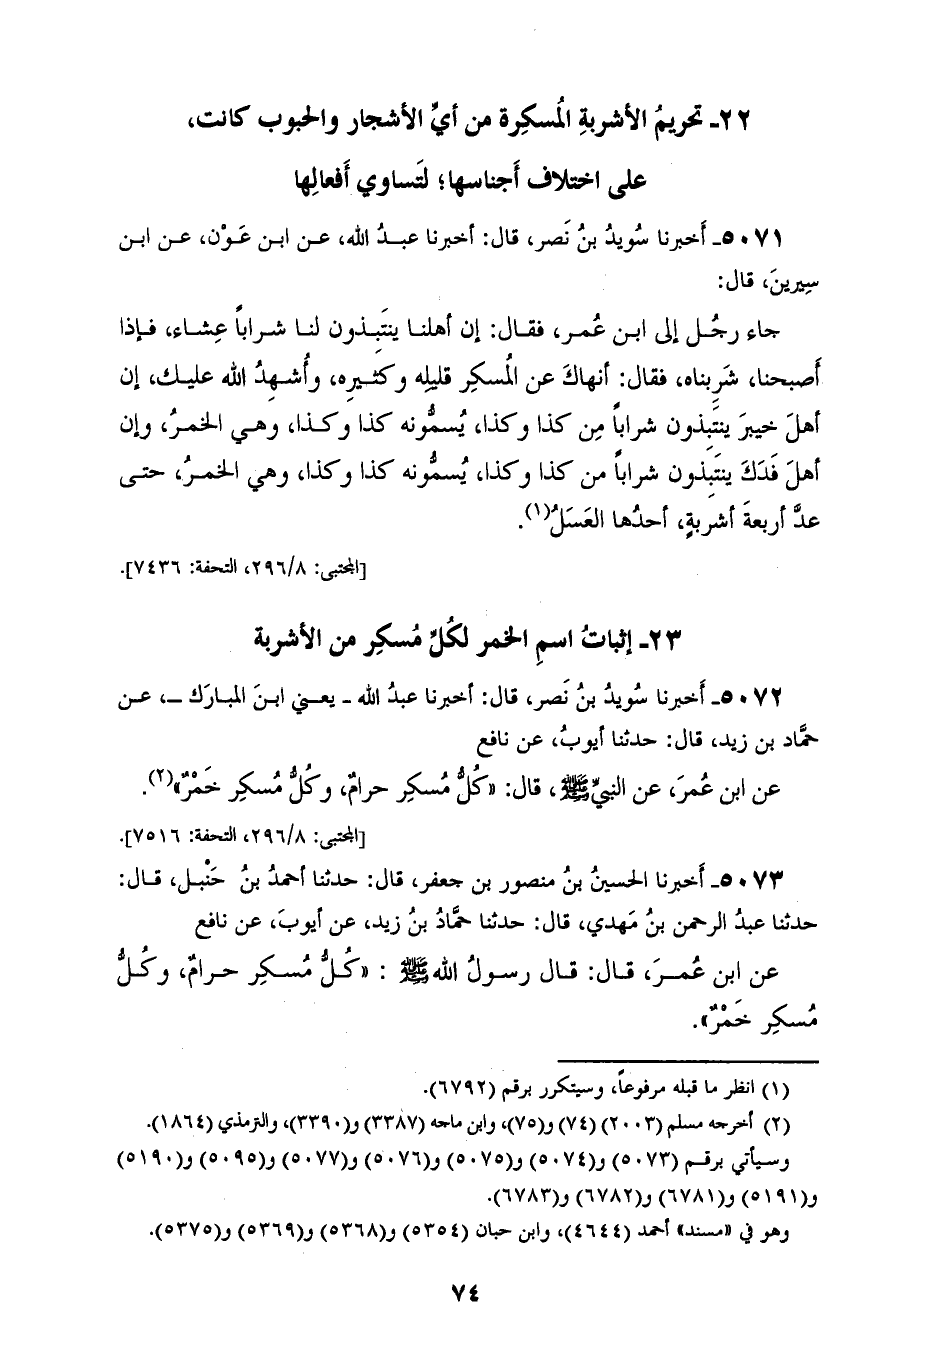 ٢٢ـ تحريمُ الأشربةِ المُسكِرة من أيِّ الأشجار والحبوب كانت،
على اختلاف أجناسها؛ لتَساوي أفعالِها
٥٠٧١ـ أَخبرنا سُويدُ بنُ نَصر، قال: أخبرنا عبدُ الله، عن ابن عَوْن، عن ابن
سِيرينَ، قال:
جاء رجُل إلى ابن عُمر، فقال: إن أهلنا ينتَبِذون لنا شراباً عِشاء، فإذا
أَصبحنا، شَرِبناه، فقال: أنهاكَ عن المُسكِر قليلِه وكثيرِه، وأُشهِدُ الله عليك، إن
أهلَ خيبرَ ينتَبِذون شراباً مِن كذا وكذا، يُسمُّونه كذا وكذا، وهي الخمرُ، وإن
أهلَ فَدَكَ ينتَبِذون شراباً من كذا وكذا، يُسمُّونه كذا وكذا، وهي الخمرُ، حتى
عدَّ أربعةَ أشربةٍ، أحدُها العَسَلُ(١).
[المجتبى: ٢٩٦/٨، التحفة: ٧٤٣٦].
٢٣ـ إثباتُ اسمِ الخمر لكُلِّ مُسكِر من الأشربة
٥٠٧٢ـ أَخبرنا سُويدُ بنُ نَصر، قال: أخبرنا عبدُ الله ـ يعني ابنَ المبارَك ـ، عن
حمَّاد بن زيد، قال: حدثنا أيوبُ، عن نافع
عن ابن عُمرَ، عن النبيِّ ﷺ، قال: «كُلُّ مُسكِر حرامٌ، وكُلُّ مُسكِر خَمْرٌ»(٢).
[المجتبى: ٢٩٦/٨، التحفة: ٧٥١٦].
٥٠٧٣ـ أَخبرنا الحسينُ بنُ منصور بن جعفر، قال: حدثنا أحمدُ بنُ حَنْبل، قال:
حدثنا عبدُ الرحمن بنُ مَهدي، قال: حدثنا حمَّادُ بنُ زيد، عن أيوبَ، عن نافع
عن ابن عُمرَ، قال: قال رسولُ الله ﷺ : «كُلُّ مُسكِر حرامٌ، وكُلُّ
مُسكِر خَمْرٌ».
(١) انظر ما قبله مرفوعاً، وسيتكرر برقم (٦٧٩٢).
(٢) أخرجه مسلم (٢٠٠٣) (٧٤) و(٧٥)، وابن ماجه (٣٣٨٧) و(٣٣٩٠)، والترمذي (١٨٦٤).
وسيأتي برقم (٥٠٧٣) و(٥٠٧٤) و(٥٠٧٥) و(٥٠٧٦) و(٥٠٧٧) و(٥٠٩٥) و(٥١٩٠)
و(٥١٩١) و(٦٧٨١) و(٦٧٨٢) و(٦٧٨٣).
وهو في «مسند» أحمد (٤٦٤٤)، وابن حبان (٥٣٥٤) و(٥٣٦٨) و(٥٣٦٩) و(٥٣٧٥).
٧٤